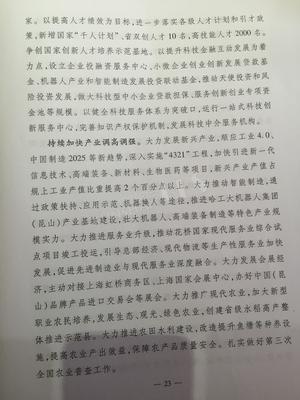 家。以提高人才绩效为目标，进一步落实各级人才计划和引才政
策，新增国家“千人计划”、省双创人才 10 名，高技能人才 2000 名。
争创国家创新人才培养示范基地。以提升科技金融互动发展为着
力点，设立企业投融资服务中心、小微企业创业创新发展贷款基
金、机器人产业和智能制造发展投贷联动基金，推动天使投资和风
险投资发展，做大科技型中小企业贷款担保、服务创新创业专项资
金池等规模。以健全科技服务体系为突破口，运行一站式科技创
新服务中心，完善知识产权保护机制，发展科技中介服务机构。
持续加快产业调高调强。大力发展新兴产业，顺应工业 4.0、
中国制造 2025 等新趋势，深入实施“4321”工程，加快引进新一代
信息技术、高端装备、新材料、生物医药等项目，新兴产业产值占
规上工业产值比重提高 2 个百分点以上。大力推动智能制造，通
过政策扶持、应用示范、机器换人等途径，推进哈工大机器人集团
(昆山)产业基地建设，壮大机器人、高端装备制造等特色产业规
模实力。大力推进服务业升级，推动花桥国家现代服务业综合试
点项目竣工投运，引导总部经济、现代物流等生产性服务业加快
发展，促进先进制造业与现代服务业深度融合。大力发展会展经
济，主动对接上海虹桥商务区、上海国家会展中心，办好中国(昆
山)品牌产品进口交易会等展会。大力推广现代农业，加大新型
职业农民培养，发展生态、观光、绿色农业，创建省级水稻高产整
体推进示范县。大力推进农田水利建设，改造提升鱼塘等种养设
施，提高农业产出效益，保障农产品质量安全。扎实做好第三次
全国农业普查工作。
— 23 —